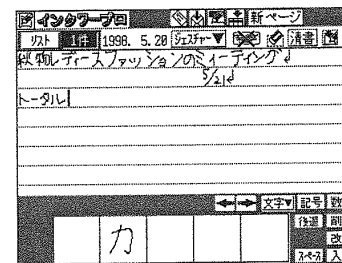 インクワープロ 新ページ
リスト 1件 1998. 5.20 ジェスチャー▼ 清書
秋物レディースファッションのミーティング
5/21
トータル
文字▼ 記号 数
後退 削
改
スペース 入
力